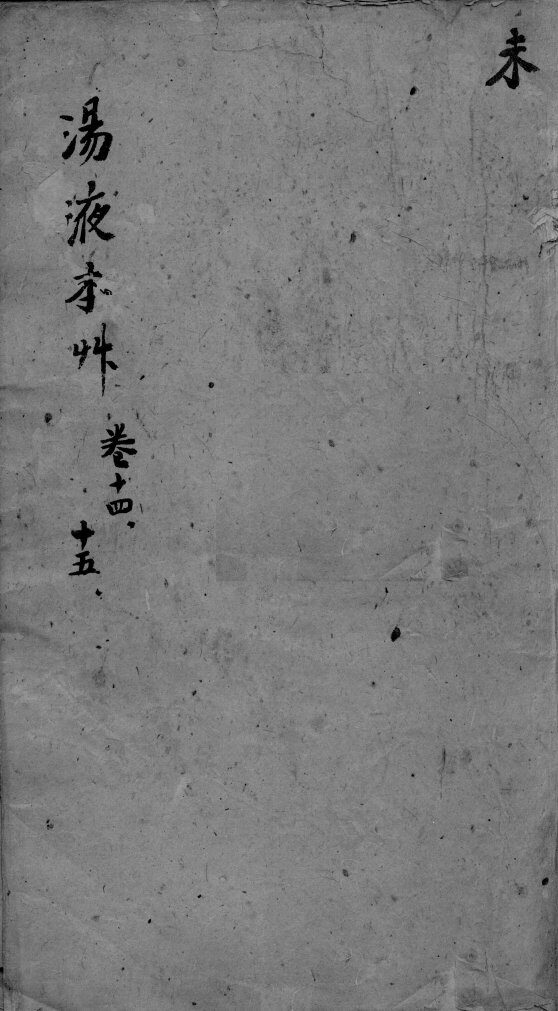 未
湯液本艸
卷十四
十五